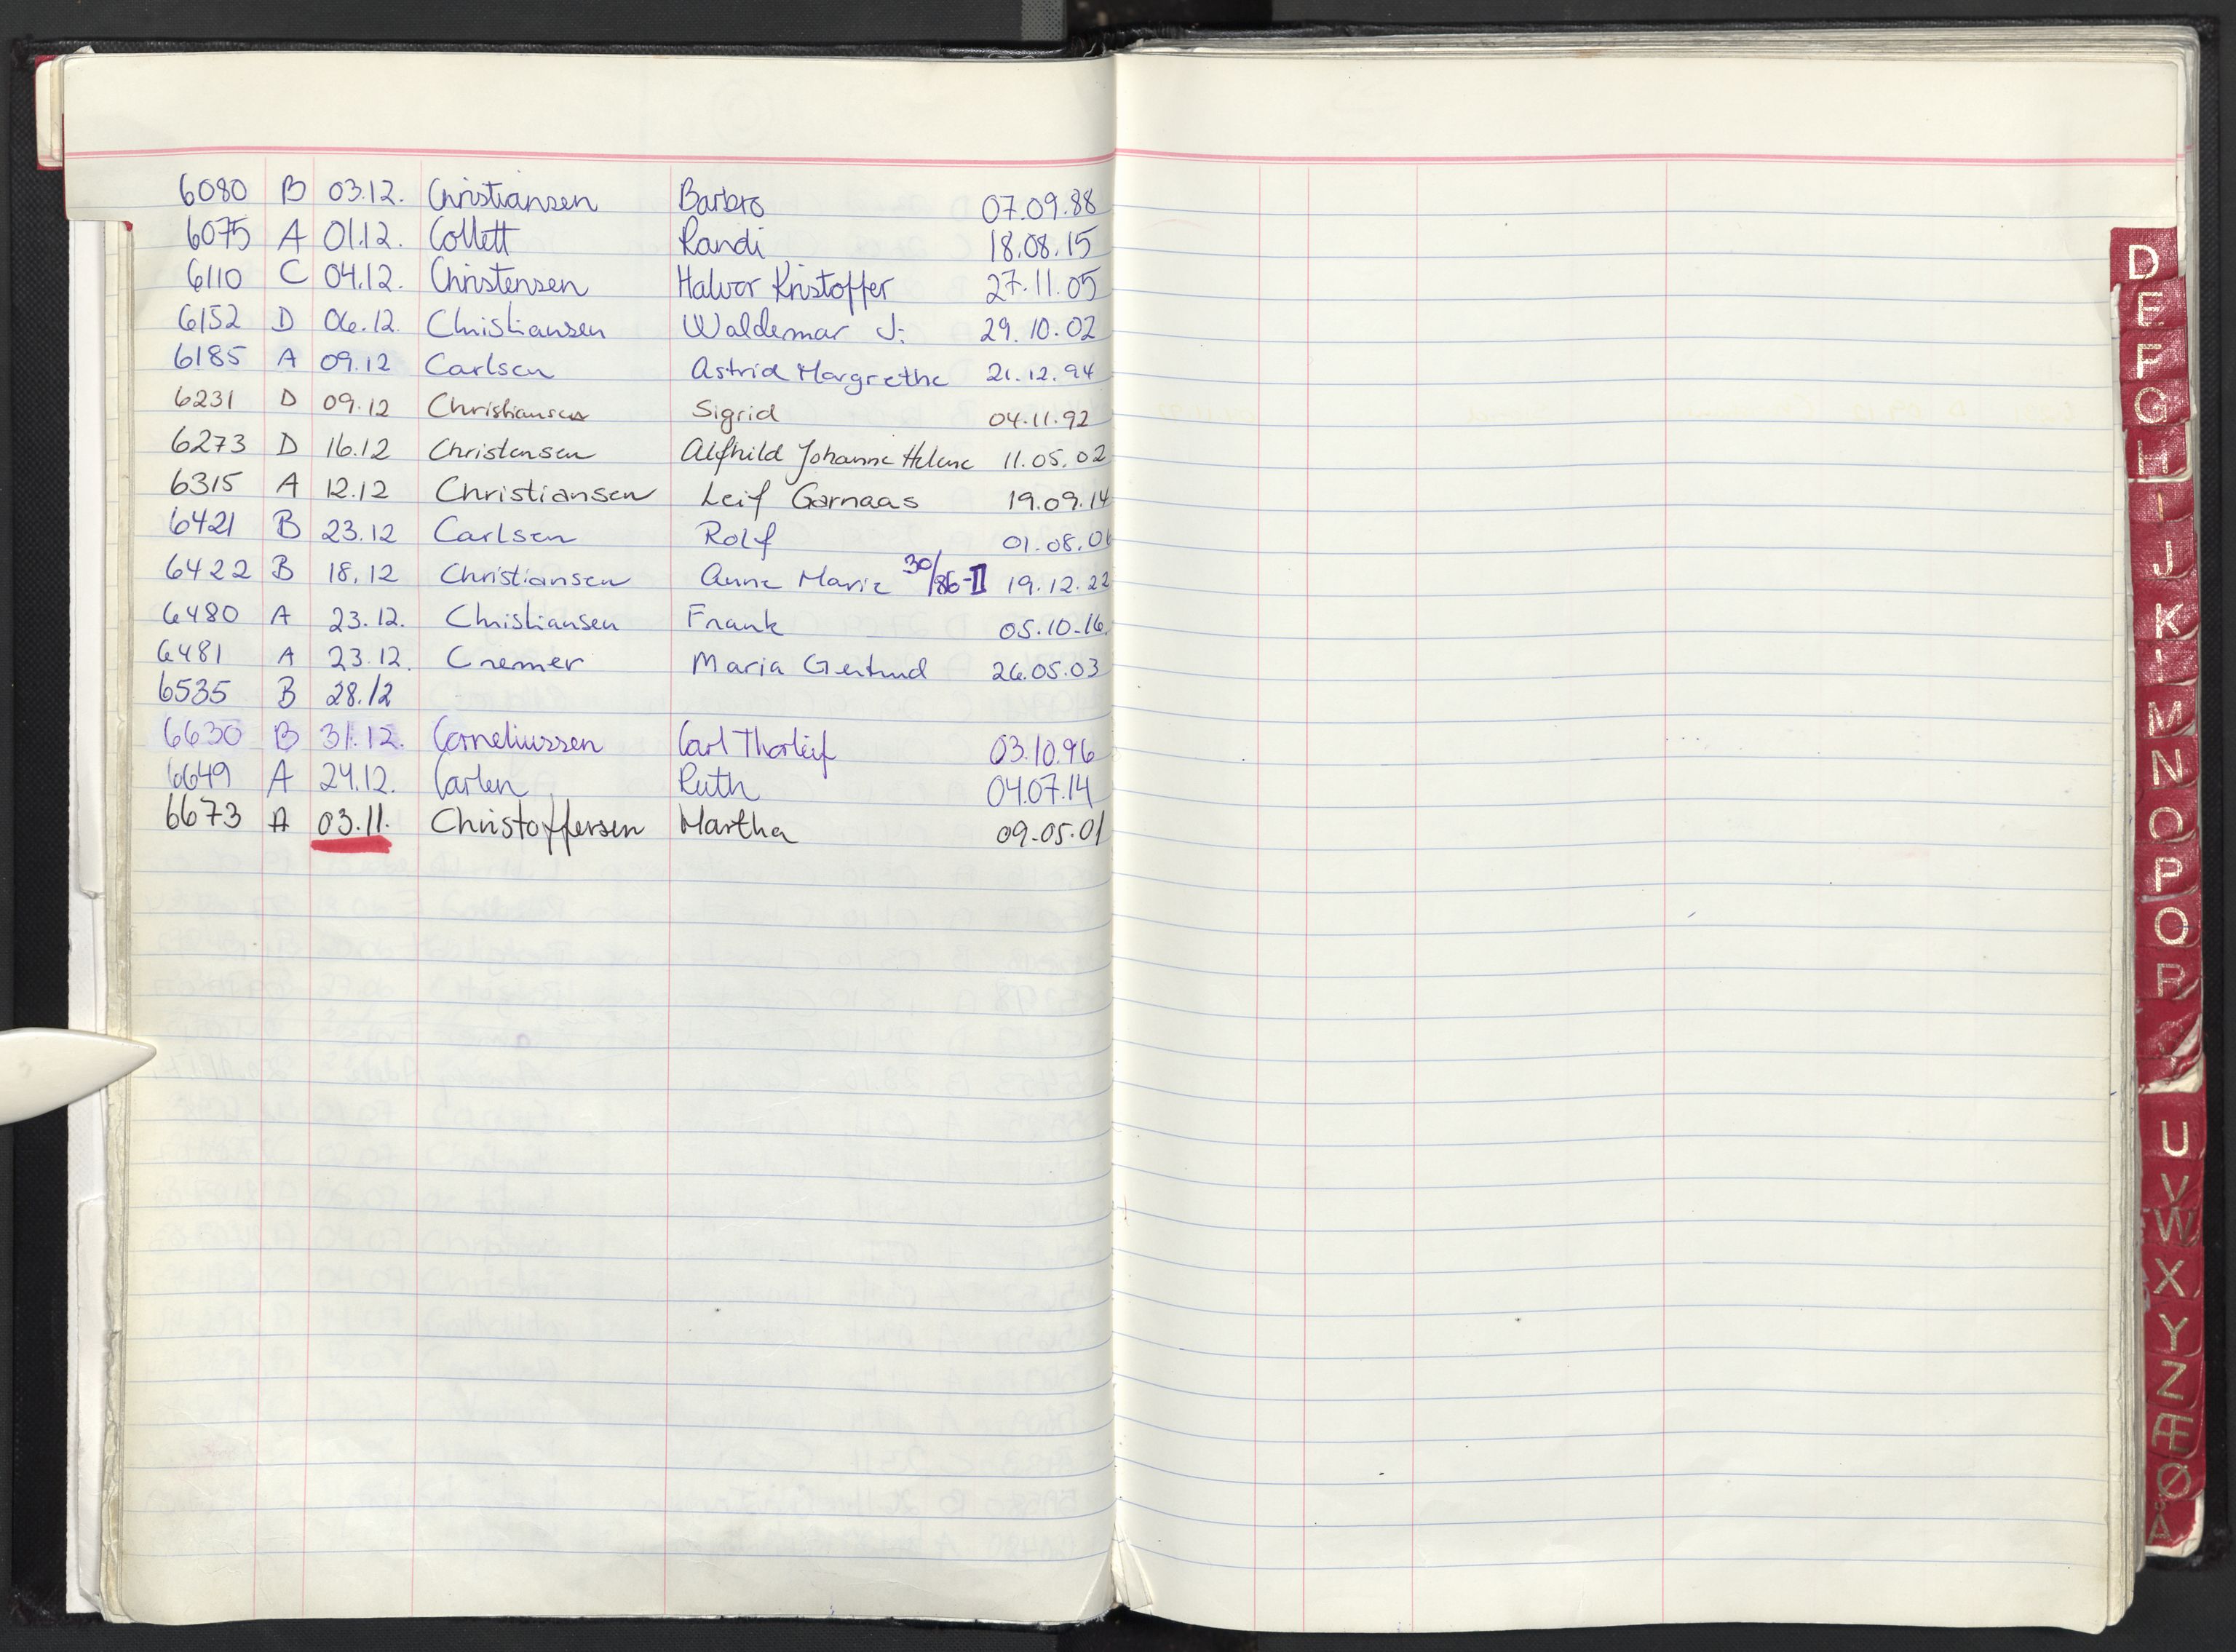 6080 B 03.12. Christiansen Barbro 07.09.88
6075 A 01.12. Collett Randi 18.08.15
6110 C 04.12. Christensen Halvor Kristoffer 27.11.05
6152 D 06.12. Christiansen Waldemar J. 29.10.02
6185 A 09.12 Carlsen Astrid Margrethe 21.12.94
6231 D 09.12 Christiansen Sigrid 04.11.92
6273 D 16.12 Christensen Alfhild Johanne Helene 11.05.02
6315 A 12.12 Christiansen Leif Garnaas 19.09.14
6421 B 23.12 Carlsen Rolf 01.08.01
6422 B 18.12 Christiansen Anne Marie 30/86-II 19.12.22
6480 A 23.12. Christiansen Frank 05.10-16.
6481 A 23.12. Cremer Maria Gertrud 26.05.03
6535 B 28.12
6630 B 31.12. Corneliussen Carl Thorleif 03.10.96
6649 A 24.12. Carlen Ruth 04.07.14
6673 A 03.11. Christoffersen Martha 09-05-01
D
E
F
G
H
I
J
K
M
N
O
P
Q
R
U
V
W
X
Y
Z
Æ
Ø
Å